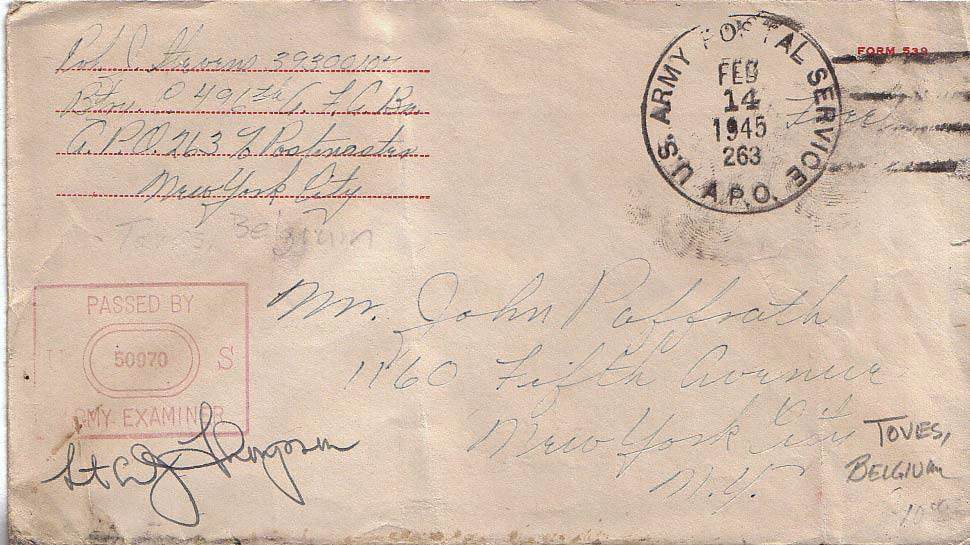 Rob. C. Stevens 39300107
Btry C 491st A.F.A. Bn
A.P.O. 263 % Postmaster
New York City
Toves, Belgium
FORM 539
U.S. ARMY POSTAL SERVICE
FEB
14
1945
263
A.P.O.
Free
PASSED BY
U 50970 S
ARMY EXAMINER
Lt
Mr. John Paffrath
1160 Fifth Avenue
New York City
N.Y.
TOVES,
BELGIUM